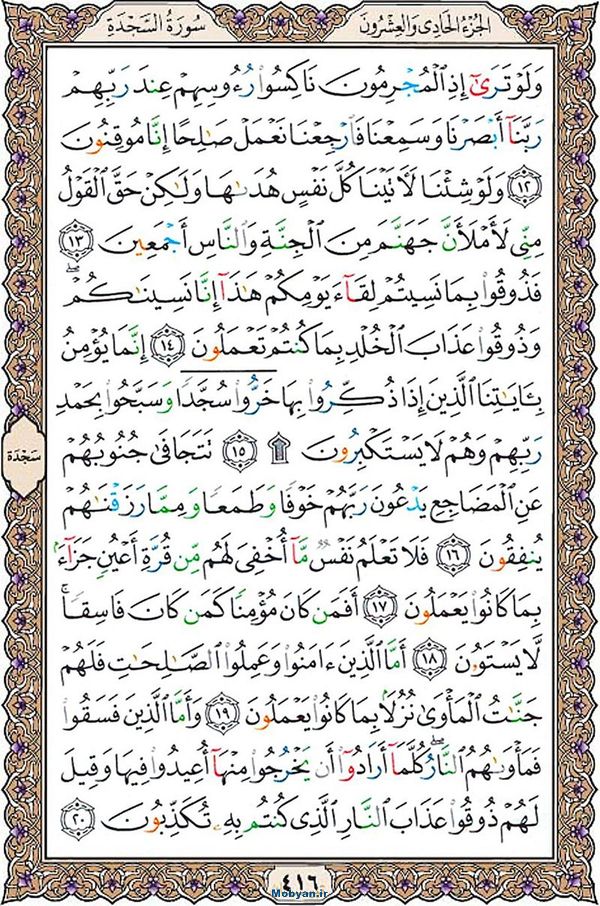 الجُزءُ الحَادِى وَالعِشرُونَ
سُورَةُ السَّجْدَةِ
وَلَوْ تَرَىٰٓ إِذِ ٱلْمُجْرِمُونَ نَاكِسُوا۟ رُءُوسِهِمْ عِندَ رَبِّهِمْ
رَبَّنَآ أَبْصَرْنَا وَسَمِعْنَا فَٱرْجِعْنَا نَعْمَلْ صَـٰلِحًا إِنَّا مُوقِنُونَ
١٢ وَلَوْ شِئْنَا لَـَٔاتَيْنَا كُلَّ نَفْسٍ هُدَىٰهَا وَلَـٰكِنْ حَقَّ ٱلْقَوْلُ
مِنِّى لَأَمْلَأَنَّ جَهَنَّمَ مِنَ ٱلْجِنَّةِ وَٱلنَّاسِ أَجْمَعِينَ ١٣
فَذُوقُوا۟ بِمَا نَسِيتُمْ لِقَآءَ يَوْمِكُمْ هَـٰذَآ إِنَّا نَسِينَـٰكُمْ ۖ
وَذُوقُوا۟ عَذَابَ ٱلْخُلْدِ بِمَا كُنتُمْ تَعْمَلُونَ ١٤ إِنَّمَا يُؤْمِنُ
بِـَٔايَـٰتِنَا ٱلَّذِينَ إِذَا ذُكِّرُوا۟ بِهَا خَرُّوا۟ سُجَّدًا وَسَبَّحُوا۟ بِحَمْدِ
رَبِّهِمْ وَهُمْ لَا يَسْتَكْبِرُونَ ۩ ١٥ تَتَجَافَىٰ جُنُوبُهُمْ
سَجْدَة
عَنِ ٱلْمَضَاجِعِ يَدْعُونَ رَبَّهُمْ خَوْفًا وَطَمَعًا وَمِمَّا رَزَقْنَـٰهُمْ
يُنفِقُونَ ١٦ فَلَا تَعْلَمُ نَفْسٌ مَّآ أُخْفِىَ لَهُم مِّن قُرَّةِ أَعْيُنٍ جَزَآءًۢ
بِمَا كَانُوا۟ يَعْمَلُونَ ١٧ أَفَمَن كَانَ مُؤْمِنًا كَمَن كَانَ فَاسِقًا ۚ
لَّا يَسْتَوُۥنَ ١٨ أَمَّا ٱلَّذِينَ ءَامَنُوا۟ وَعَمِلُوا۟ ٱلصَّـٰلِحَـٰتِ فَلَهُمْ
جَنَّـٰتُ ٱلْمَأْوَىٰ نُزُلًۢا بِمَا كَانُوا۟ يَعْمَلُونَ ١٩ وَأَمَّا ٱلَّذِينَ فَسَقُوا۟
فَمَأْوَىٰهُمُ ٱلنَّارُ ۖ كُلَّمَآ أَرَادُوٓا۟ أَن يَخْرُجُوا۟ مِنْهَآ أُعِيدُوا۟ فِيهَا وَقِيلَ
لَهُمْ ذُوقُوا۟ عَذَابَ ٱلنَّارِ ٱلَّذِى كُنتُم بِهِۦ تُكَذِّبُونَ ٢٠
٤١٦
Mobyan.ir